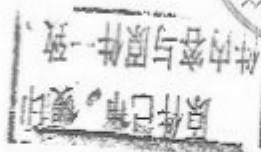 原件已 印
件内容与原件一致